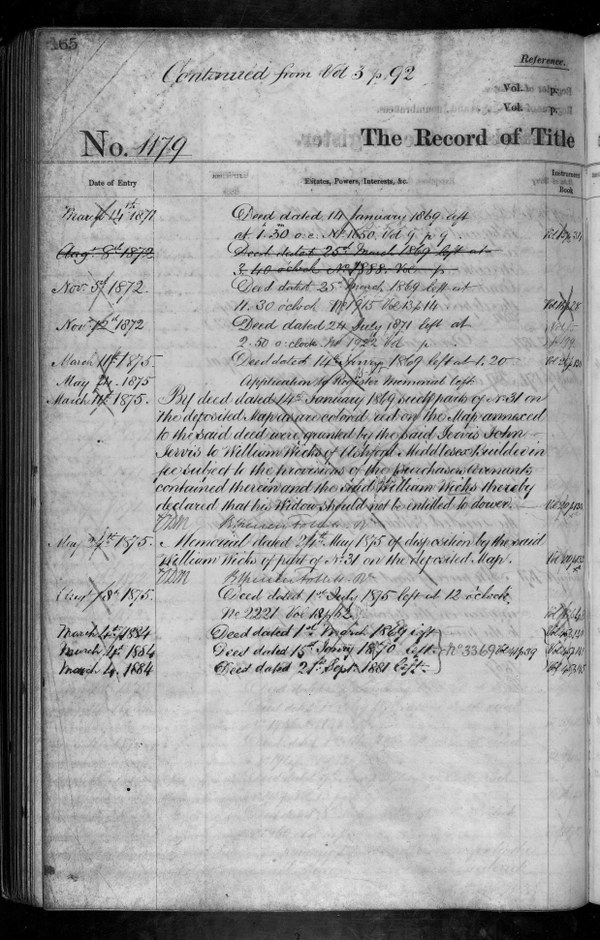 165
Continued from Vol 3 p. 92
Reference.
Vol. p.
Vol. p.
No. 1179 The Record of Title
Date of Entry Estates, Powers, Interests, &c. Instrument Book
March 14th 1871 Deed dated 14 January 1869 left
at 1.30 o.c. No 1650. Vol 9 p 9
Augt 8th 1872 Deed dated 25th March 1869 left at
3.40 o'clock No 1888. Vol p
Novr 5th 1872. Deed dated 25th March 1869 left at
11.30 o'clock No 1915 Vol 13 p 14
Novr 12th 1872 Deed dated 24 July 1871 left at
2.50 o'clock No 1922 Vol p
March 11th 1875. Deed dated 14th Jany 1869 left at 1.20
May 24. 1875 Application to Register Memorial left
March 11th 1875. By deed dated 14th January 1869 such parts of No 31 on
the deposited Map as are colored red on the Map annexed
to the said deed were granted by the said Jervis John
Jervis to William Wicks of Ashford Middlesex Builder in
fee subject to the provisions of the Purchasers Covenants
contained therein and the said William Wicks thereby
declared that his Widow should not be entitled to dower.
May 24th 1875. Memorial dated 24th May 1875 of disposition by the said
William Wicks of part of No 31 on the deposited Map.
1875. Deed dated 1st July 1875 left at 12 o'clock
No 2221 Vol
March 4th 1884 Deed dated 1st March 1869 left
March 4th 1884 Deed dated 15th Jany 1870 left No 3369
March 4. 1884 Deed dated 21st Sept 1881 left